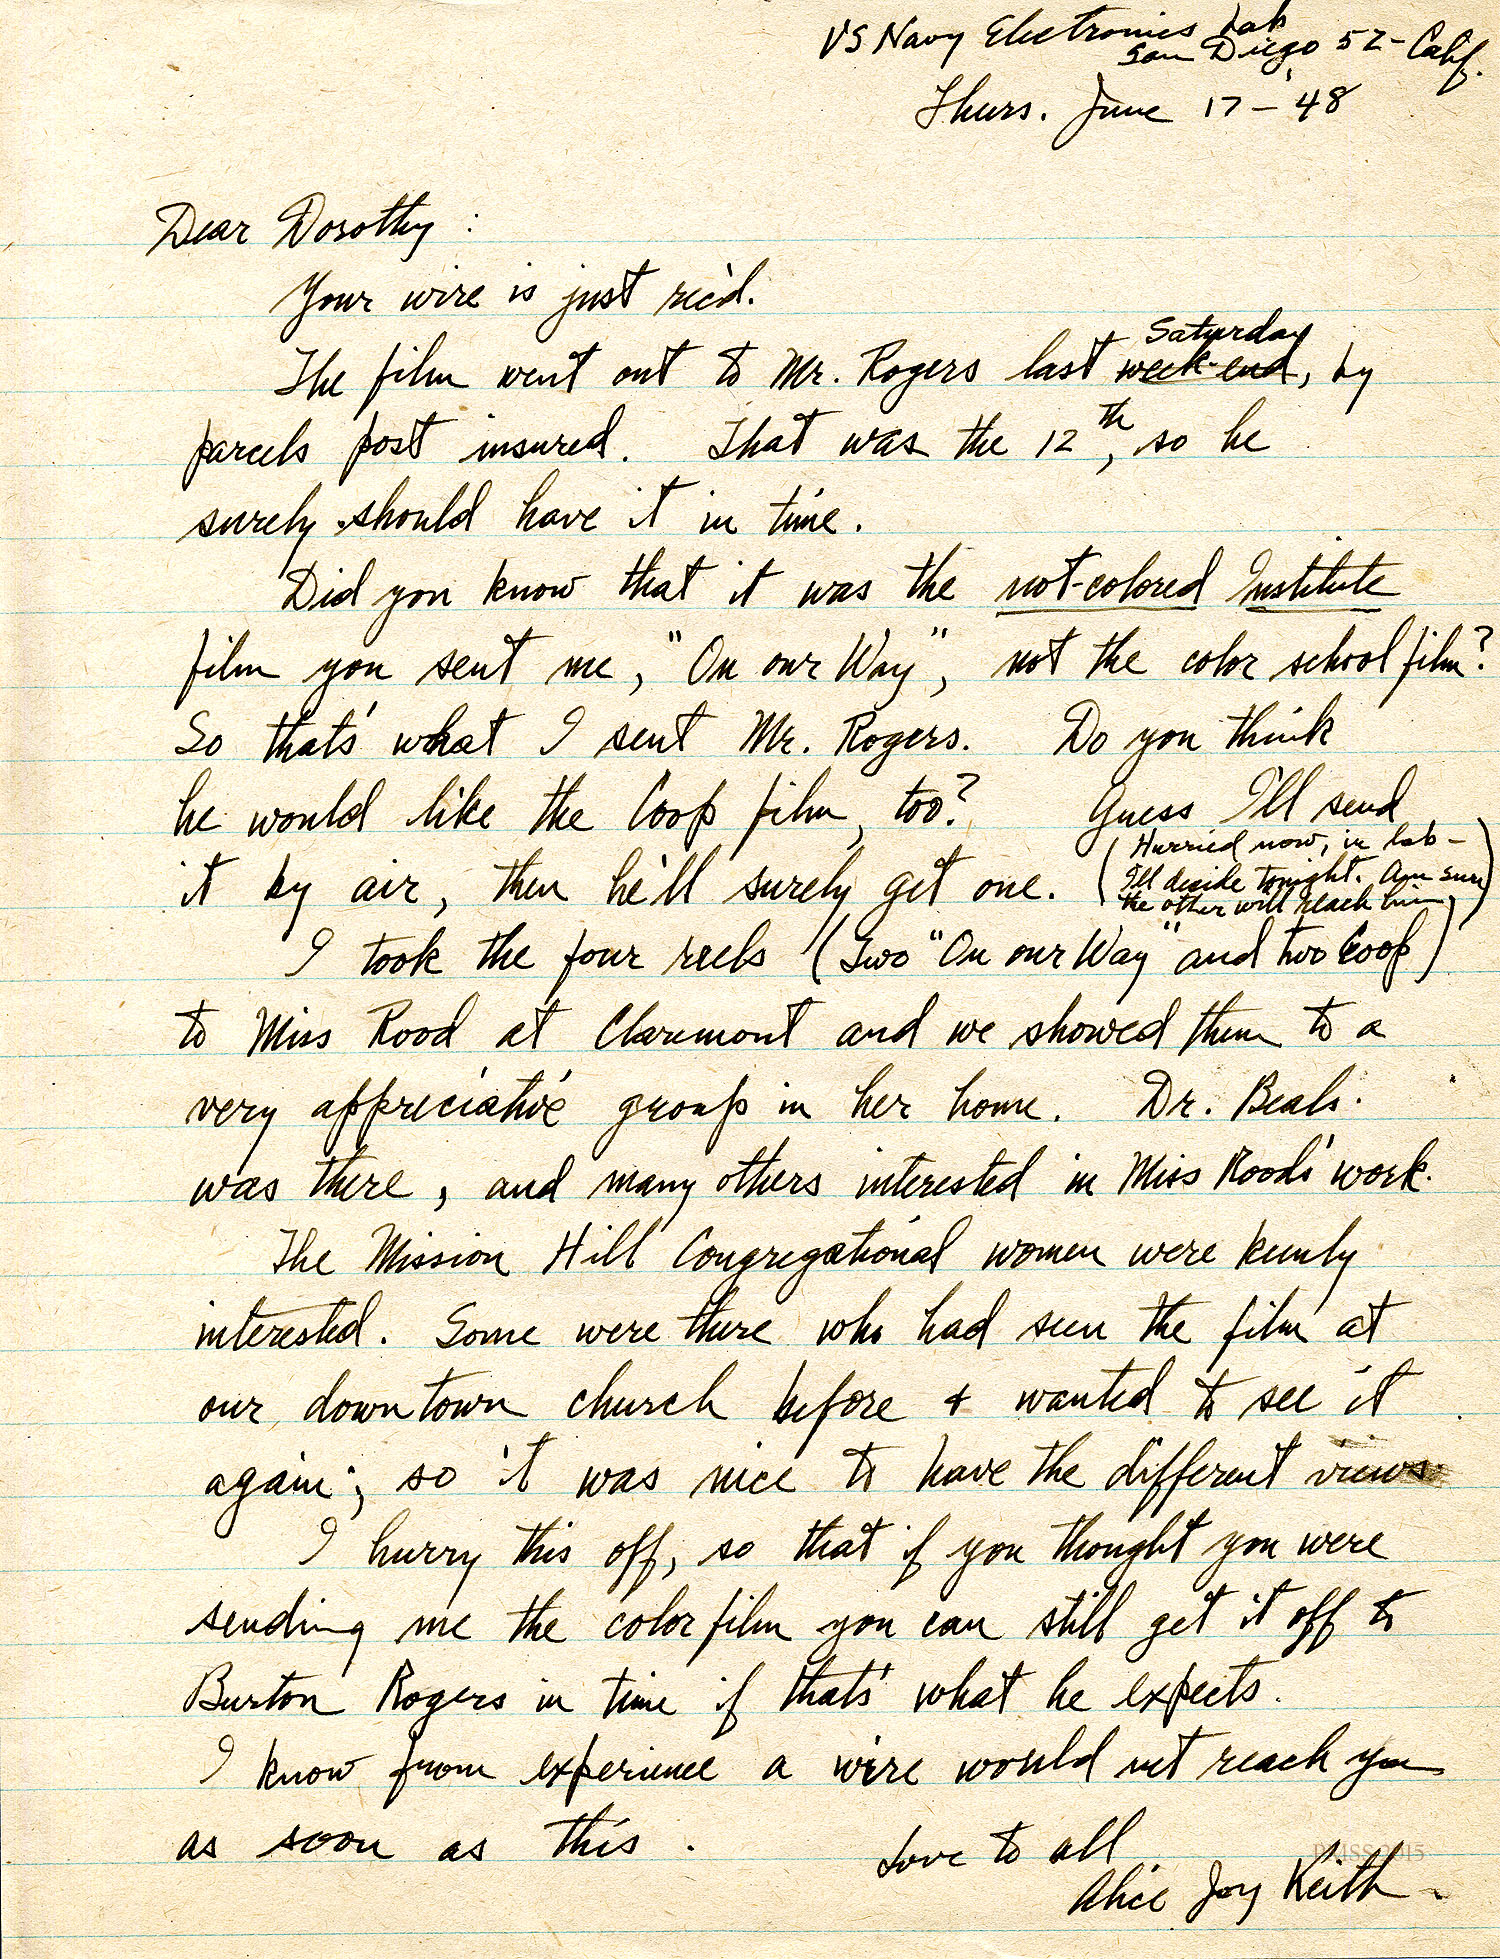 US Navy Electronics Lab
San Diego 52 - Calif.
Thurs. June 17 - 48
Dear Dorothy :
Your wire is just rec'd.
The film went out to Mr. Rogers last week-end, by
Saturday
parcels post insured. That was the 12th, so he
surely should have it in time.
Did you know that it was the not-colored Institute
film you sent me, "On our Way", not the color school film?
So that's what I sent Mr. Rogers. Do you think
he would like the Coop film, too? Guess I'll send
it by air, then he'll surely get one. (Hurried now, in lab -
I'll decide tonight. Am sure
the other will reach him.)
I took the four reels (Two "On our Way" and two Coop)
to Miss Rood at Claremont and we showed them to a
very appreciative group in her home. Dr. Beals
was there, and many others interested in Miss Roods' work.
The Mission Hill Congregational women were keenly
interested. Some were there who had seen the film at
our downtown church before + wanted to see it
again; so it was nice to have the different views.
I hurry this off, so that if you thought you were
sending me the color film you can still get it off to
Burton Rogers in time if that's what he expects.
I know from experience a wire would not reach you
as soon as this.
Love to all
Alice Joy Keith -
PMSS 2015